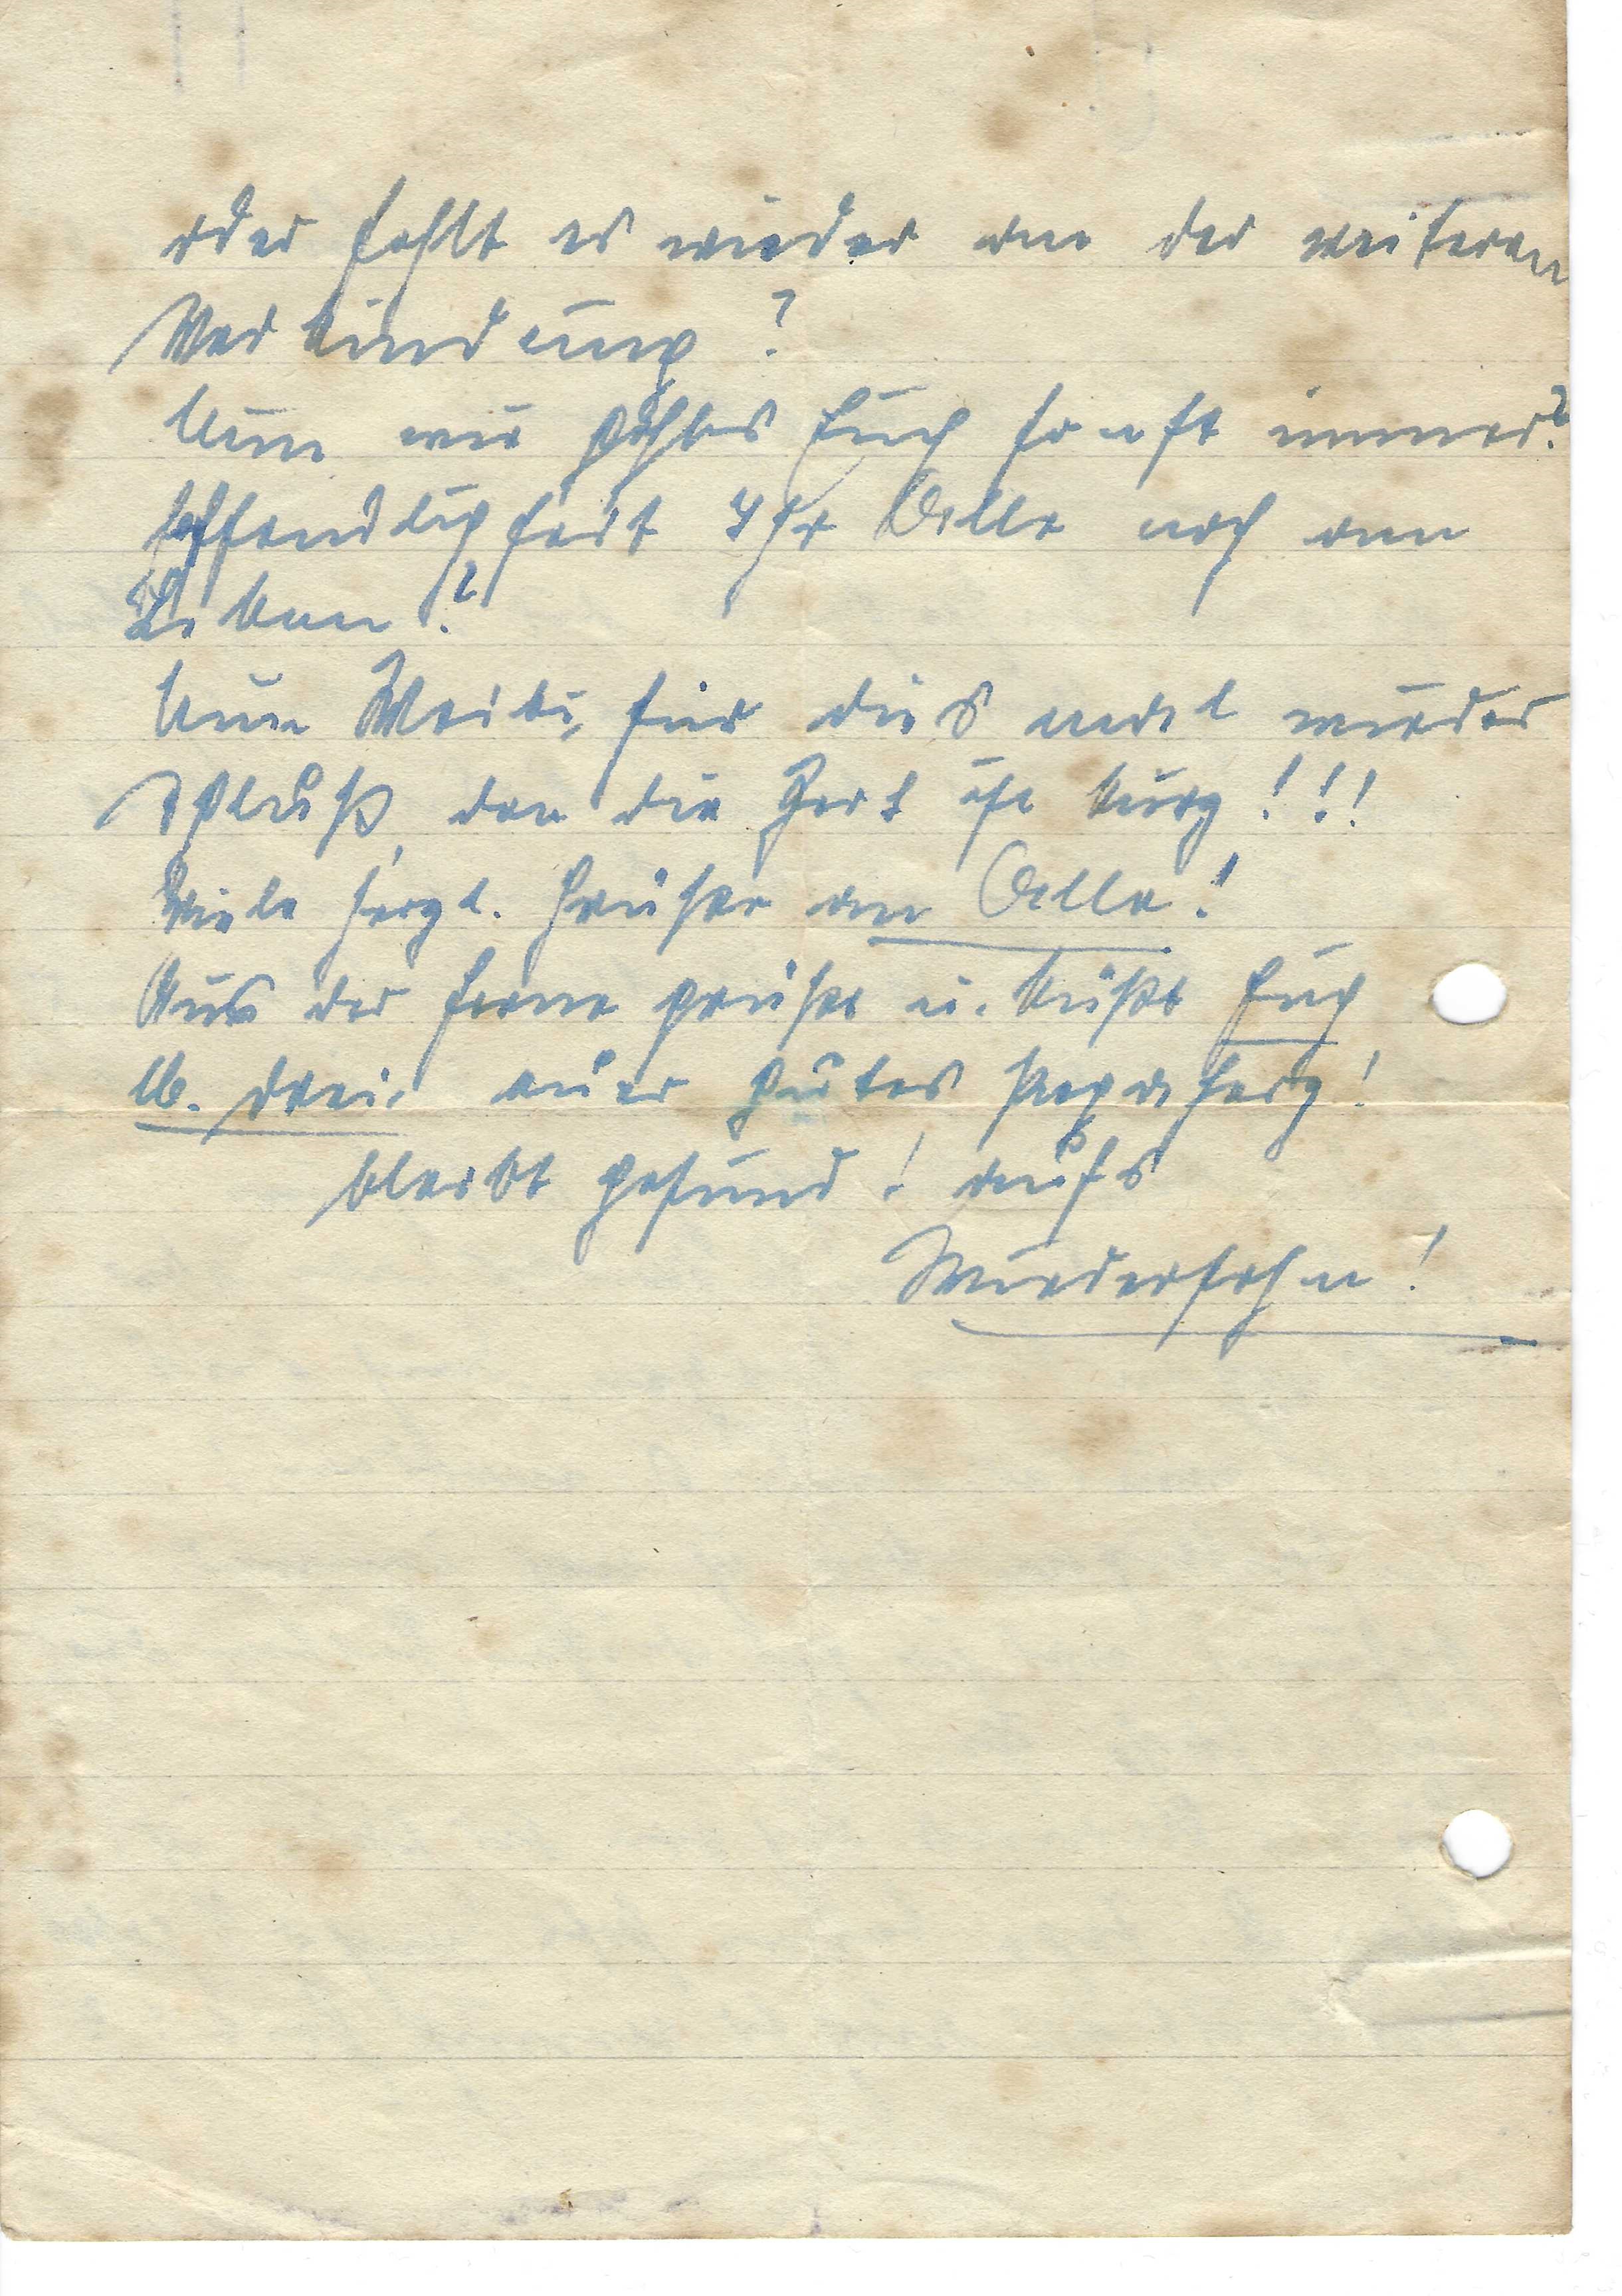 oder fehlt es wieder an der weiteren
Verbindung?
Nun wie gehts Euch sonst immer?
hoffendlich seit Ihr Alle noch am
Leben?
Nun Weibi, für dies mal wieder
Schluß, den die Zeit ist kurz!!!
Viele herzl. Grüße an Alle!
Aus der Ferne grüßt u. küßt Euch
lb. drei, euer gutes Papaherz!
bleibt gesund! aufs
Wiedersehn!